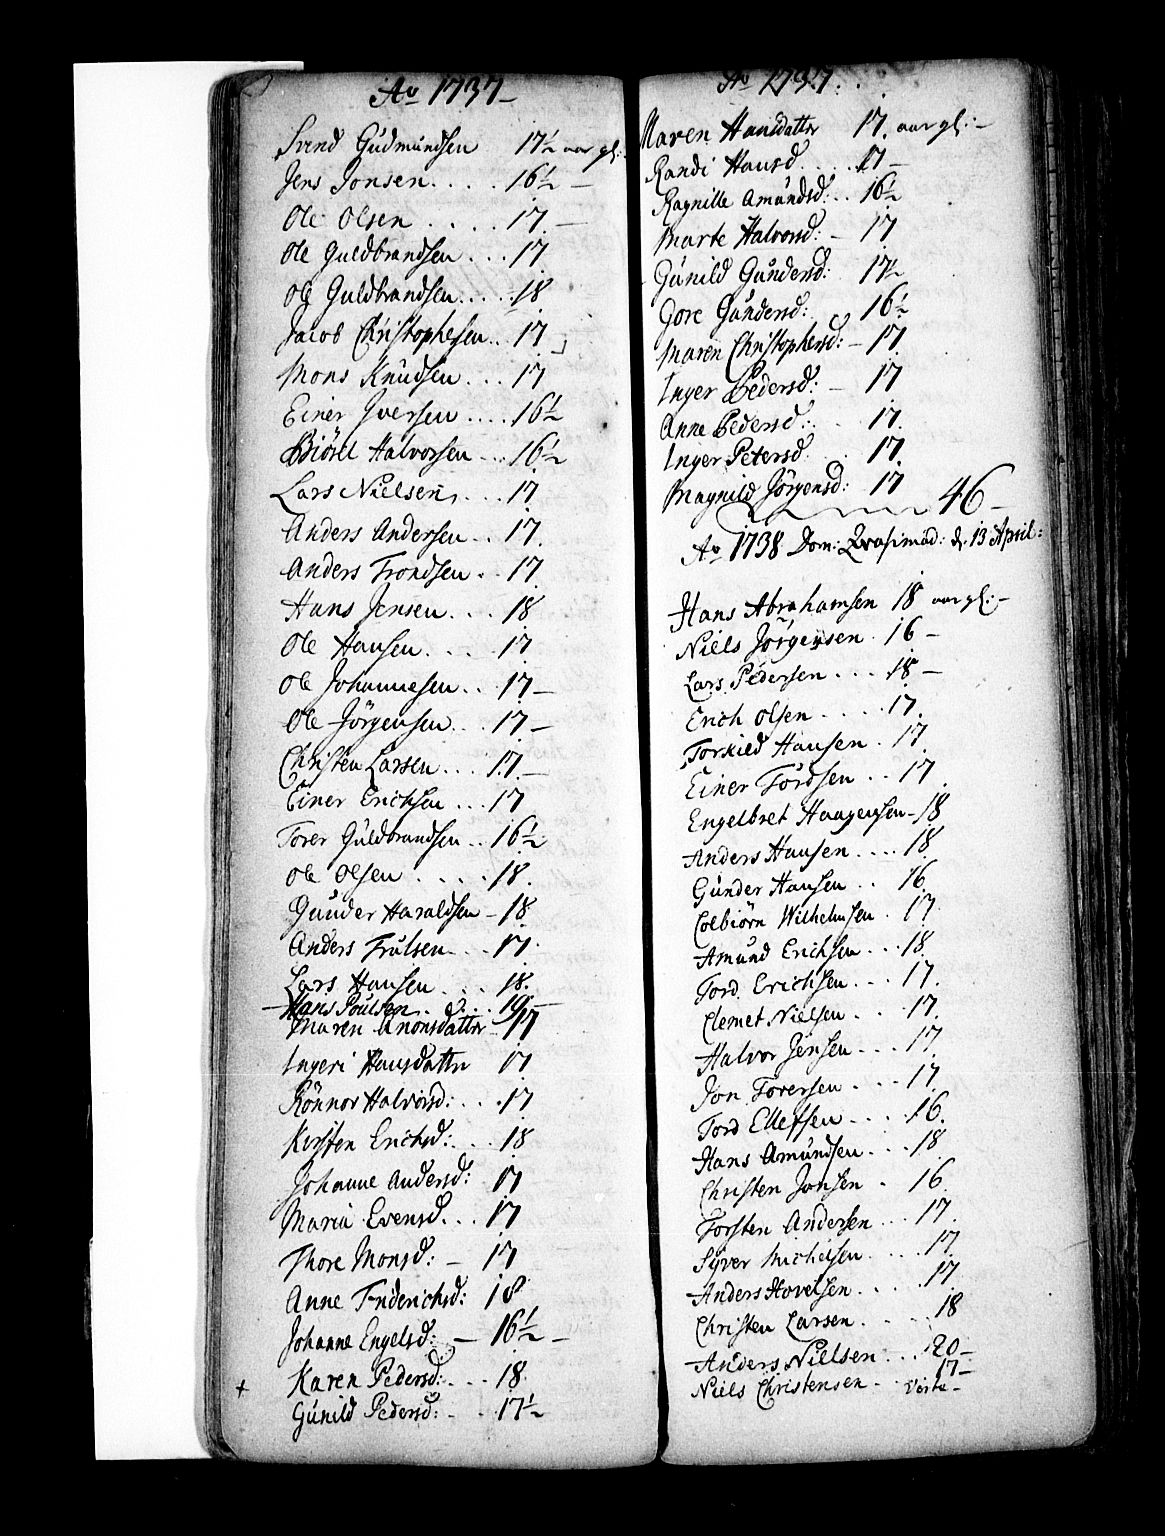 Ao 1737
Svend Gudmundsen 17½ aar gl:
Jens Jonsen.... 16½ –
Ole Olsen ..... 17. –
Ole Guldbrandsen... 17
Ole Guldbrandsen.... 18
Jacob Christophesen.. 17
Mons Knudsen... 17
Einer Iversen.... 16½
Biösel Halvorsen... 16½
Lars Nielsen.... 17
Anders Andersen.. 17.
Anders Trondsen.. 17
Hans Jensen... 18
Ole Hansen.... 17
Ole Johannesen... 17 –
Ole Jörgensen... 17 –
Christen Larsen... 17 –
Einer Erichsen... 17
Torer Guldbrandsen.. 16½
Ole Olsen .... 18.
Gunder Haraldsen – 18
Anders Trulsen... 17.
Lars Hansen... 18.
Hans Poulsen... 19 –
Maren Anonsdatter 17
Ingeri Hansdatter 17
Rönnor Halvorsd:... 17
Kirsten Erichsd:.. 18
Johanne Andersd: 17
Maria Evensd... 17
Thore Monsd: – 17
Anne Friderichsd: 18
Johanne Engelsd: – 16½ –
+ Karen Pedersd... 18
Gunild Pedersd: – 17½
Ao 1737.
Maren Hansdatter 17. aar gl: –
Randi Hansd..... 17 –
Ragnille Amundsd... 16½
Marte Halvorsd: – 17
Gunild Gundersd: 17½
Gore Gundersd: 16½
Maren Christophersd: – 17
Inger Pedersd: – 17
Anne Pedersd:.. 17.
Inger Petersd. 17.
Magnild Jörgensd: 17
46 –
Ao 1738 Dom: Qvasimod: d. 13 April:
Hans Abrahamsen 18 aar gl: –
Niels Jörgensen . 16 –
Lars Pedersen ... 18 –
Erich Olsen .... 17.
Torkild Hansen . 17.
Einer Tordsen .. 17
Engelbret Haagensen – 18
Anders Hansen.... 18
Gunder Hansen .. 16.
Colbiörn Wilhelmsen . 17
Amund Erichsen ... 18
Tord Erichsen... 17.
Clemet Nielsen ... 17
Halvor Jensen ... 17.
Jon Torersen ... 17
Tord Ellefsen.... 16.
Hans Amundsen... 18
Christen Jonsen . 16.
Torsten Andersen ... 17.
Syver Michelsen.... 17
Anders Hovelsen.... 17
Christen Larsen.... 18
Anders Nielsen... 20 –
Niels Christensen .. 17 –